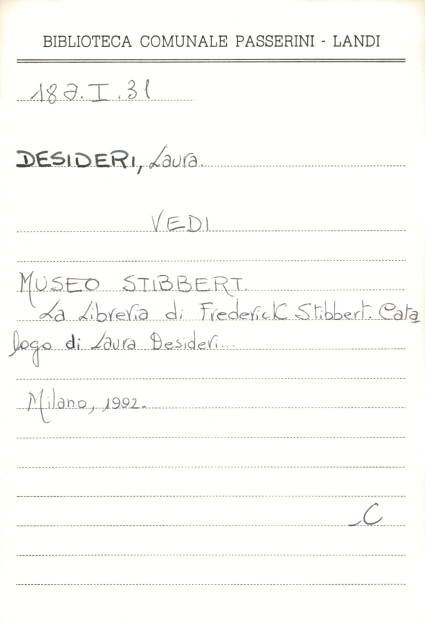 BIBLIOTECA COMUNALE PASSERINI - LANDI
18 Ə.I.31
DESIDERI, Laura.
VEDI
MUSEO STIBBERT.
La Libreria di Frederick Stibbert. Cata
logo di Laura Desideri...
Milano, 1992.
C